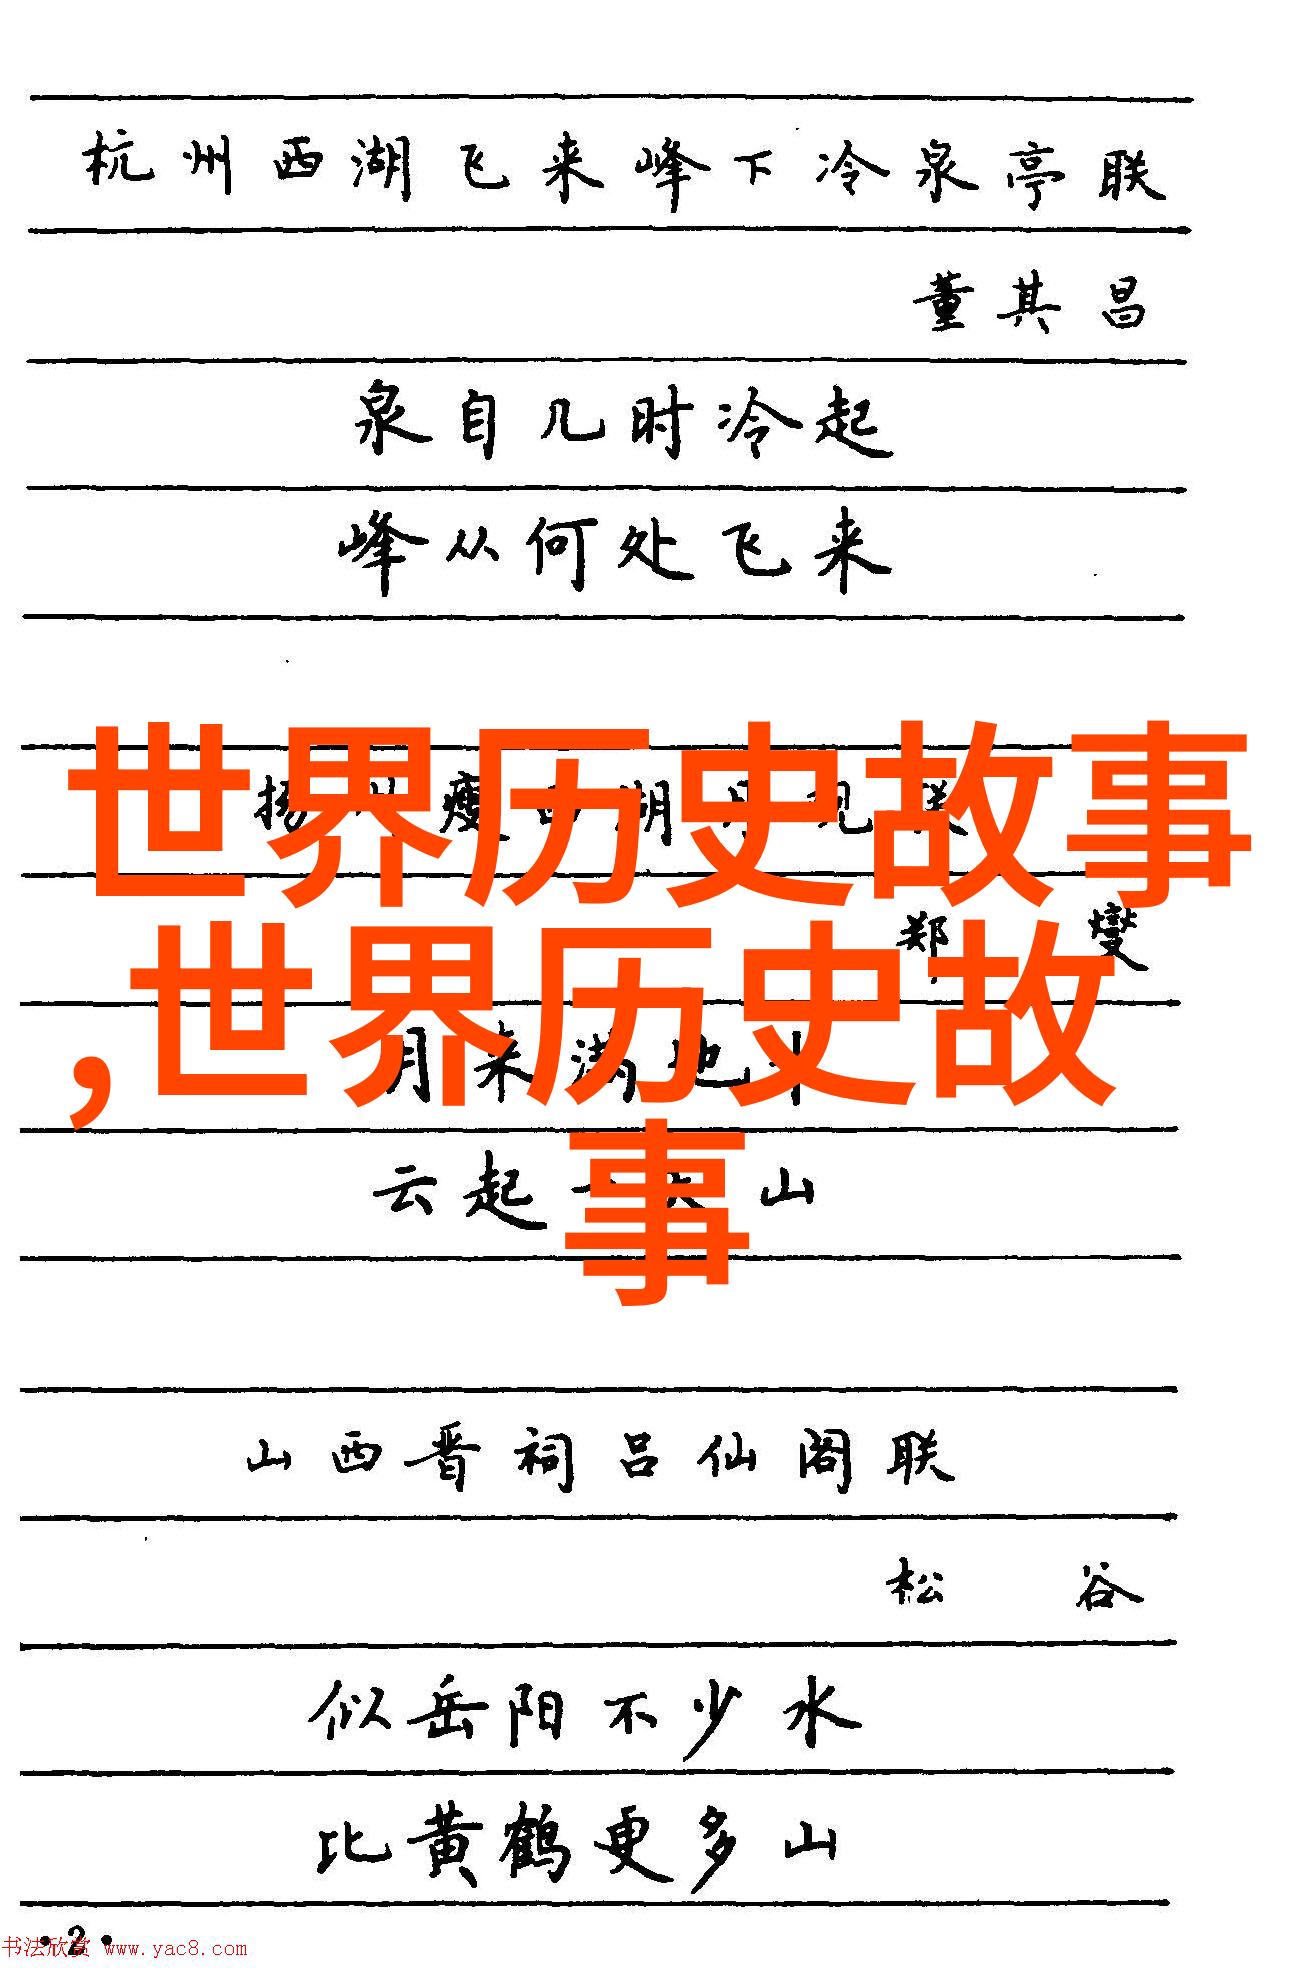 杭州西湖飞来峰下冷泉亭联
董其昌
泉自几时冷起
峰从何处飞来
世界历史故事
扬州瘦西湖月观联
郑燮
,世界历史故
月来满地
事
云起一天山
山西晋祠吕仙阁联
松谷
似岳阳不少水
比黄鹤更多山
·2·
书法欣赏 www.yac8.com